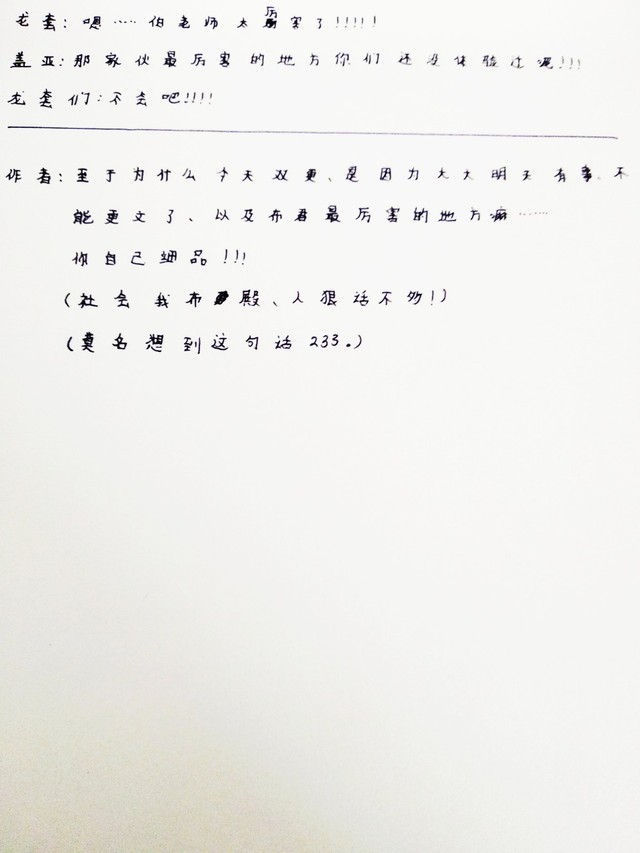 龙套：嗯……伯老师太厉害了!!!!!
盖亚：那家伙最厉害的地方你们还没体验过呢!!!
龙套们：不会吧!!!!
作者：至于为什么今天双更、是因为大大明天有事、不
能更文了、以及布君最厉害的地方嘛……
你自己细品!!!
(社会我布殿、人狠话不多!)
(莫名想到这句话233。)